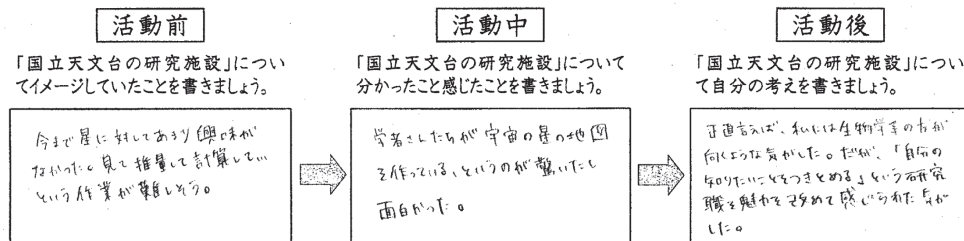 活動前
「国立天文台の研究施設」につい
てイメージしていたことを書きましょう。
今まで星に対してあまり興味が
なかった。見て推量して計算して…
という作業が難しそう。
活動中
「国立天文台の研究施設」について
分かったこと感じたことを書きましょう。
学者さんたちが宇宙の星の地図
を作っている、というのが驚いたし
面白かった。
活動後
「国立天文台の研究施設」につい
て自分の考えを書きましょう。
正直言えば、私には生物学系の方が
向くような気がした。だが、「自分の
知りたいことをつきとめる」という研究
職を魅力を改めて感じられた気が
した。